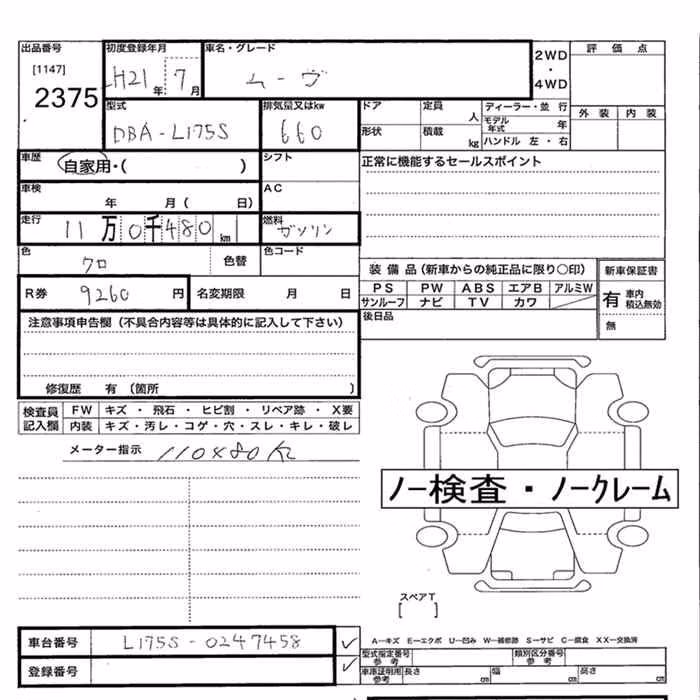 出品番号
[1147]
2375
初度登録年月
H21年 7月
車名・グレード
ムーヴ
2WD
・
4WD
評価点
外装 内装
型式
DBA-L175S
排気量又はkw
660
ドア
定員
人
形状
積載
kg
ディーラー・並 行
モデル年式 年
ハンドル 左・右
車歴
自家用・( )
シフト
正常に機能するセールスポイント
車検
年 月( 日)
AC
走行
11万0千480km
燃料
ガソリン
色
クロ
色替
色コード
装備品(新車からの純正品に限り〇印)
新車保証書
PS PW ABS エアB アルミW
サンルーフ ナビ TV カワ
有 車内積込無効
無
R券 9260円
名変期限 月 日
後日品
注意事項申告欄(不具合内容等は具体的に記入して下さい)
修復歴 有(箇所 )
検査員記入欄
FW キズ・飛石・ヒビ割・リペア跡・X要
内装 キズ・汚レ・コゲ・穴・スレ・キレ・破レ
メーター指示
ノー検査・ノークレーム
スペアT
[ ]
車台番号 L175S-0247458
登録番号
A−キズ E−エクボ U−凹み W−補修跡 S−サビ C−腐食 XX−交換済
型式指定番号 参考
類別区分番号 参考
車庫証明用 参考
長さ cm
幅 cm
高さ cm